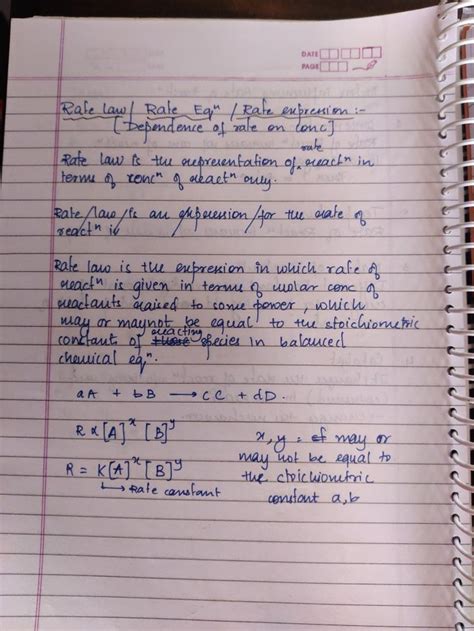 DATE
PAGE
Rate law / Rate Eqⁿ / Rate expression :-
[Dependence of rate on conc]
rate
Rate law is the representation of reactⁿ in
terms of concⁿ of reactⁿ only.
Rate/law/is an expression/for the rate of
reactⁿ is
Rate law is the expression in which rate of
reactⁿ is given in terms of molar conc of
reactants raised to some power, which
may or maynot be equal to the stoichiometric
reacting
constants of those species in balanced
chemical eqⁿ.
aA + bB → cC + dD.
R ∝ [A]ˣ [B]ʸ
x, y = may or
may not be equal to
the stoichiometric
constant a,b
R = K[A]ˣ [B]ʸ
↳ Rate constant